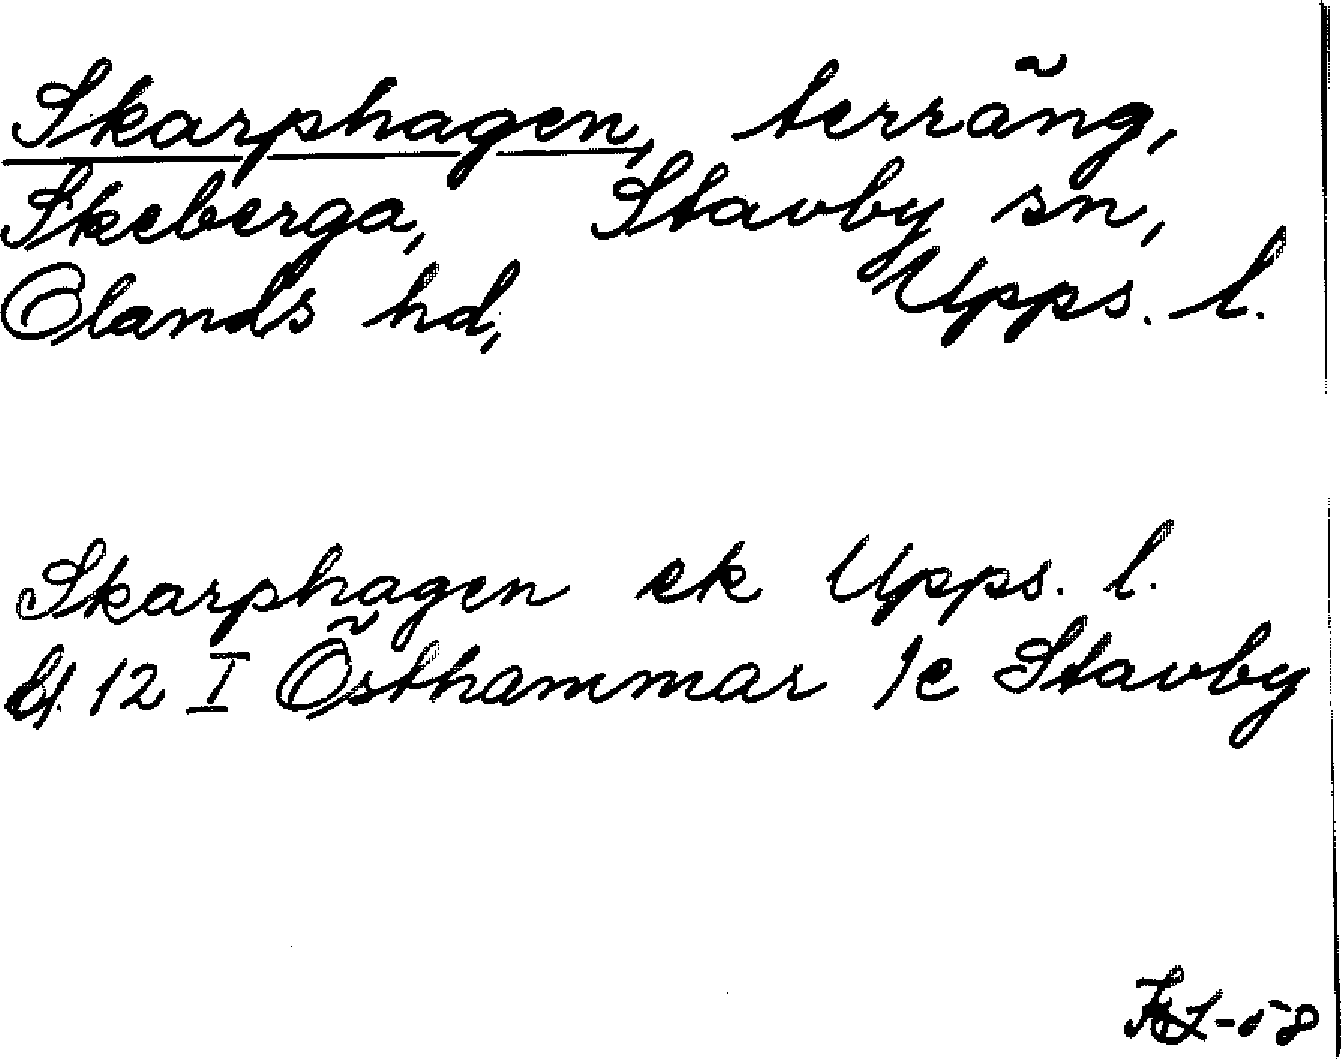 Skarphagen, terräng,
Skeberga, Stavby sn,
Olands hd, Upps. l.
Skarphagen ek Upps. l.
bl. 12 I Östhammar 1e Stavby